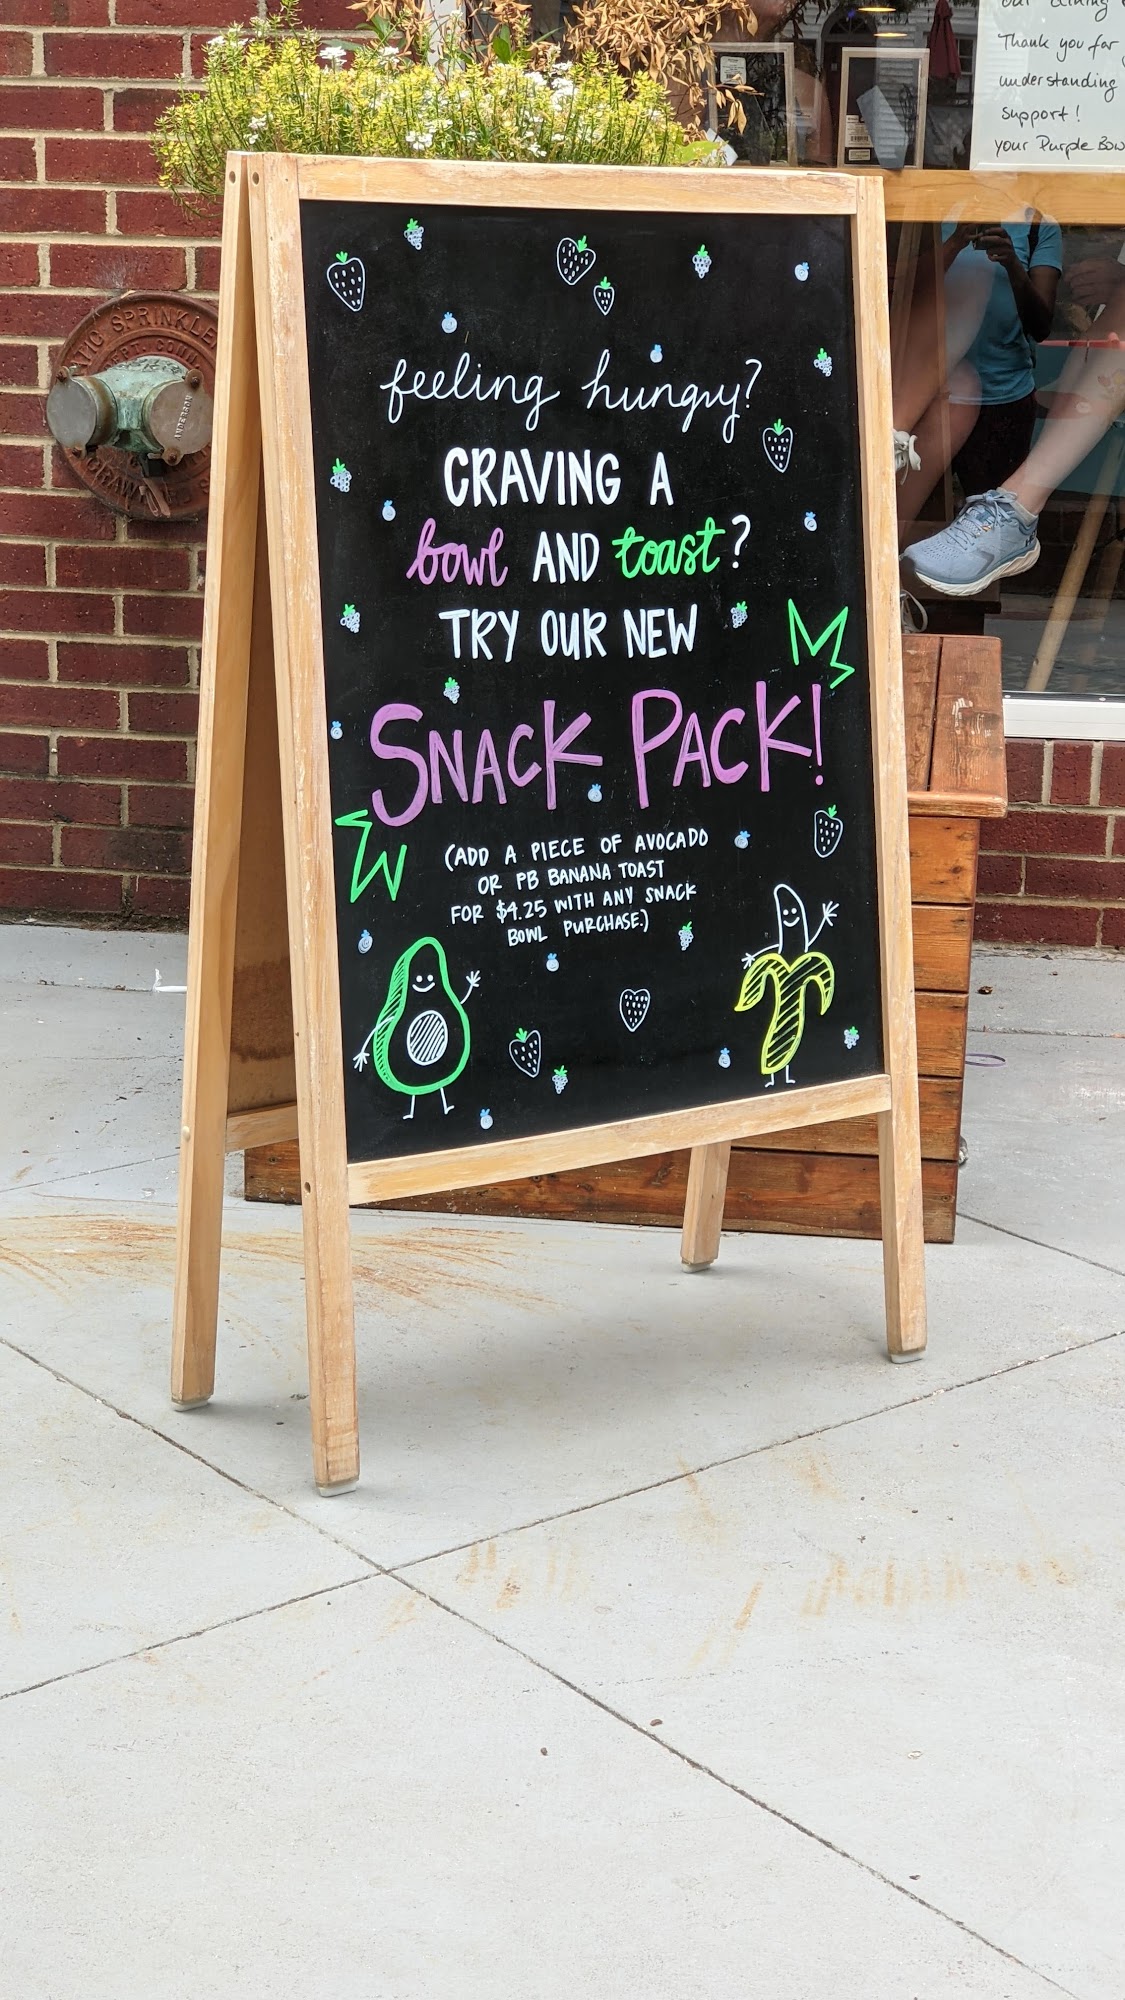 feeling hungry?
CRAVING A
bowl AND toast?
TRY OUR NEW
SNACK PACK!
(ADD A PIECE OF AVOCADO
OR PB BANANA TOAST
FOR $4.25 WITH ANY SNACK
BOWL PURCHASE.)
our dining
Thank you for
understanding
support!
your Purple Bow
SPRINKLE